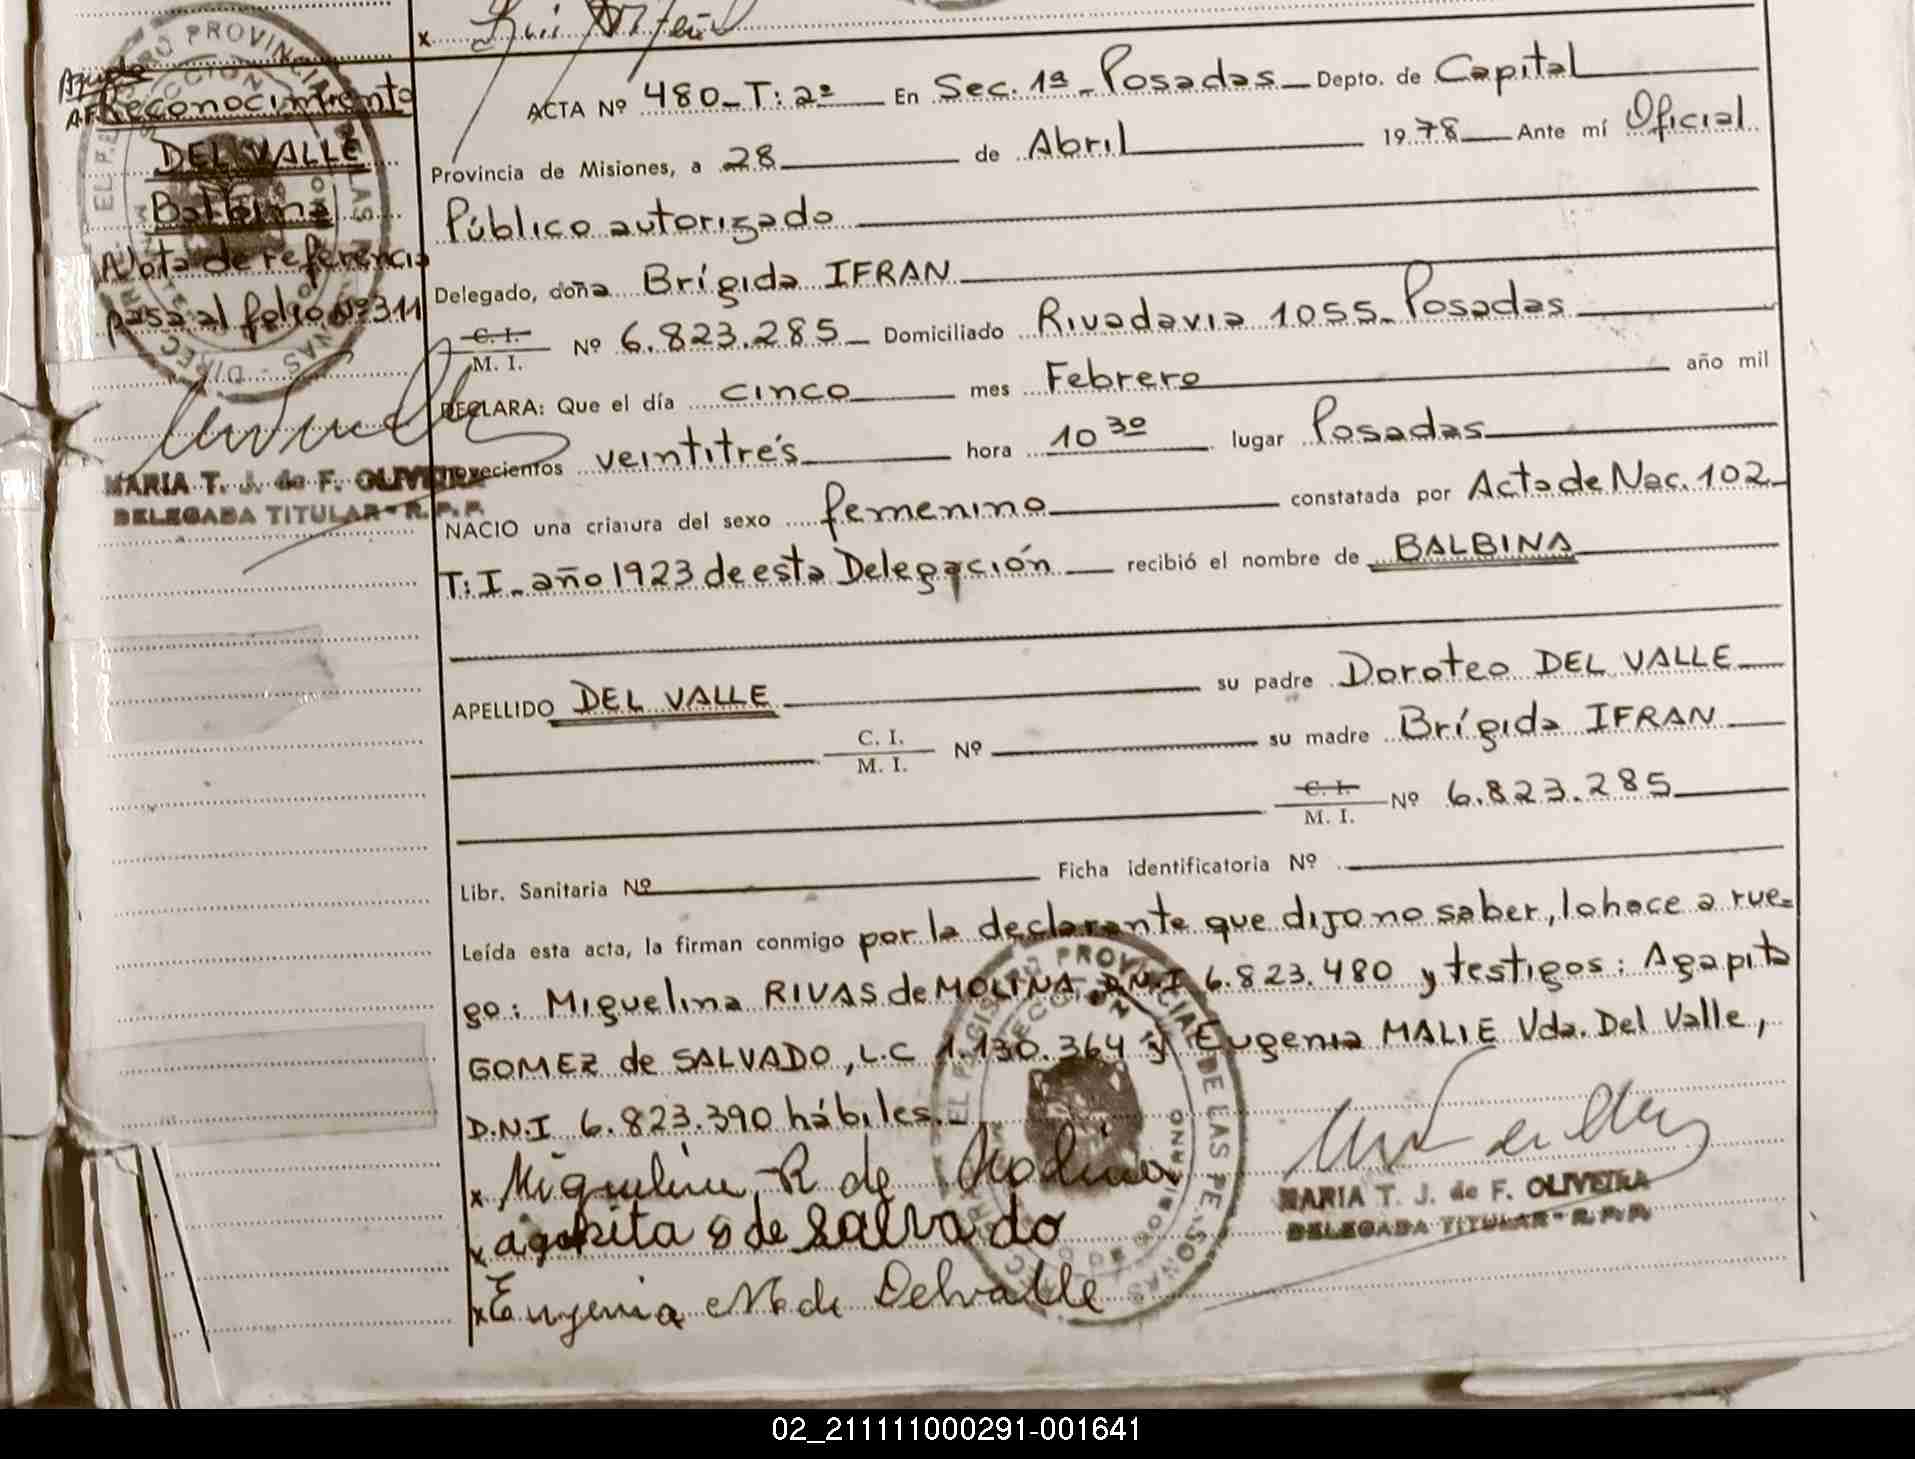 x
Reconocimiento
DEL VALLE
Balbina
Nota de referencia
pasa al folio Nº 311
MARIA T. J. de F. OLIVEIRA
DELEGADA TITULAR - R.P.P.
ACTA Nº 480_T: 2º En Sec. 1ª_Posadas Depto. de Capital
Provincia de Misiones, a 28 de Abril 1978 Ante mí Oficial
Público autorizado
Delegado, doña Brígida IFRAN
C. I.
M. I. Nº 6.823.285 Domiciliado Rivadavia 1055_Posadas
DECLARA: Que el día cinco mes Febrero año mil
novecientos veintitrés hora 10 30 lugar Posadas
NACIO una criatura del sexo femenino constatada por Acta de Nac. 102_
T: I_ año 1923 de esta Delegación recibió el nombre de BALBINA
APELLIDO DEL VALLE su padre Doroteo DEL VALLE
C. I.
M. I. Nº su madre Brígida IFRAN
C. I.
M. I. Nº 6.823.285
Libr. Sanitaria Nº Ficha identificatoria Nº
Leída esta acta, la firman conmigo por la declarante que dijo no saber, lo hace a rue=
go: Miguelina RIVAS de MOLINA, D.N.I 6.823.480 y testigos: Agapita
GOMEZ de SALVADO, L.C 1.130.364 y Eugenia MALIE Vda. Del Valle,
D.N.I 6.823.390 hábiles._
x Miguelina R de Molina
x agapita g de Salvado
x Eugenia M de Delvalle
MARIA T. J. de F. OLIVEIRA
DELEGADA TITULAR - R.P.P.
02_211111000291-001641